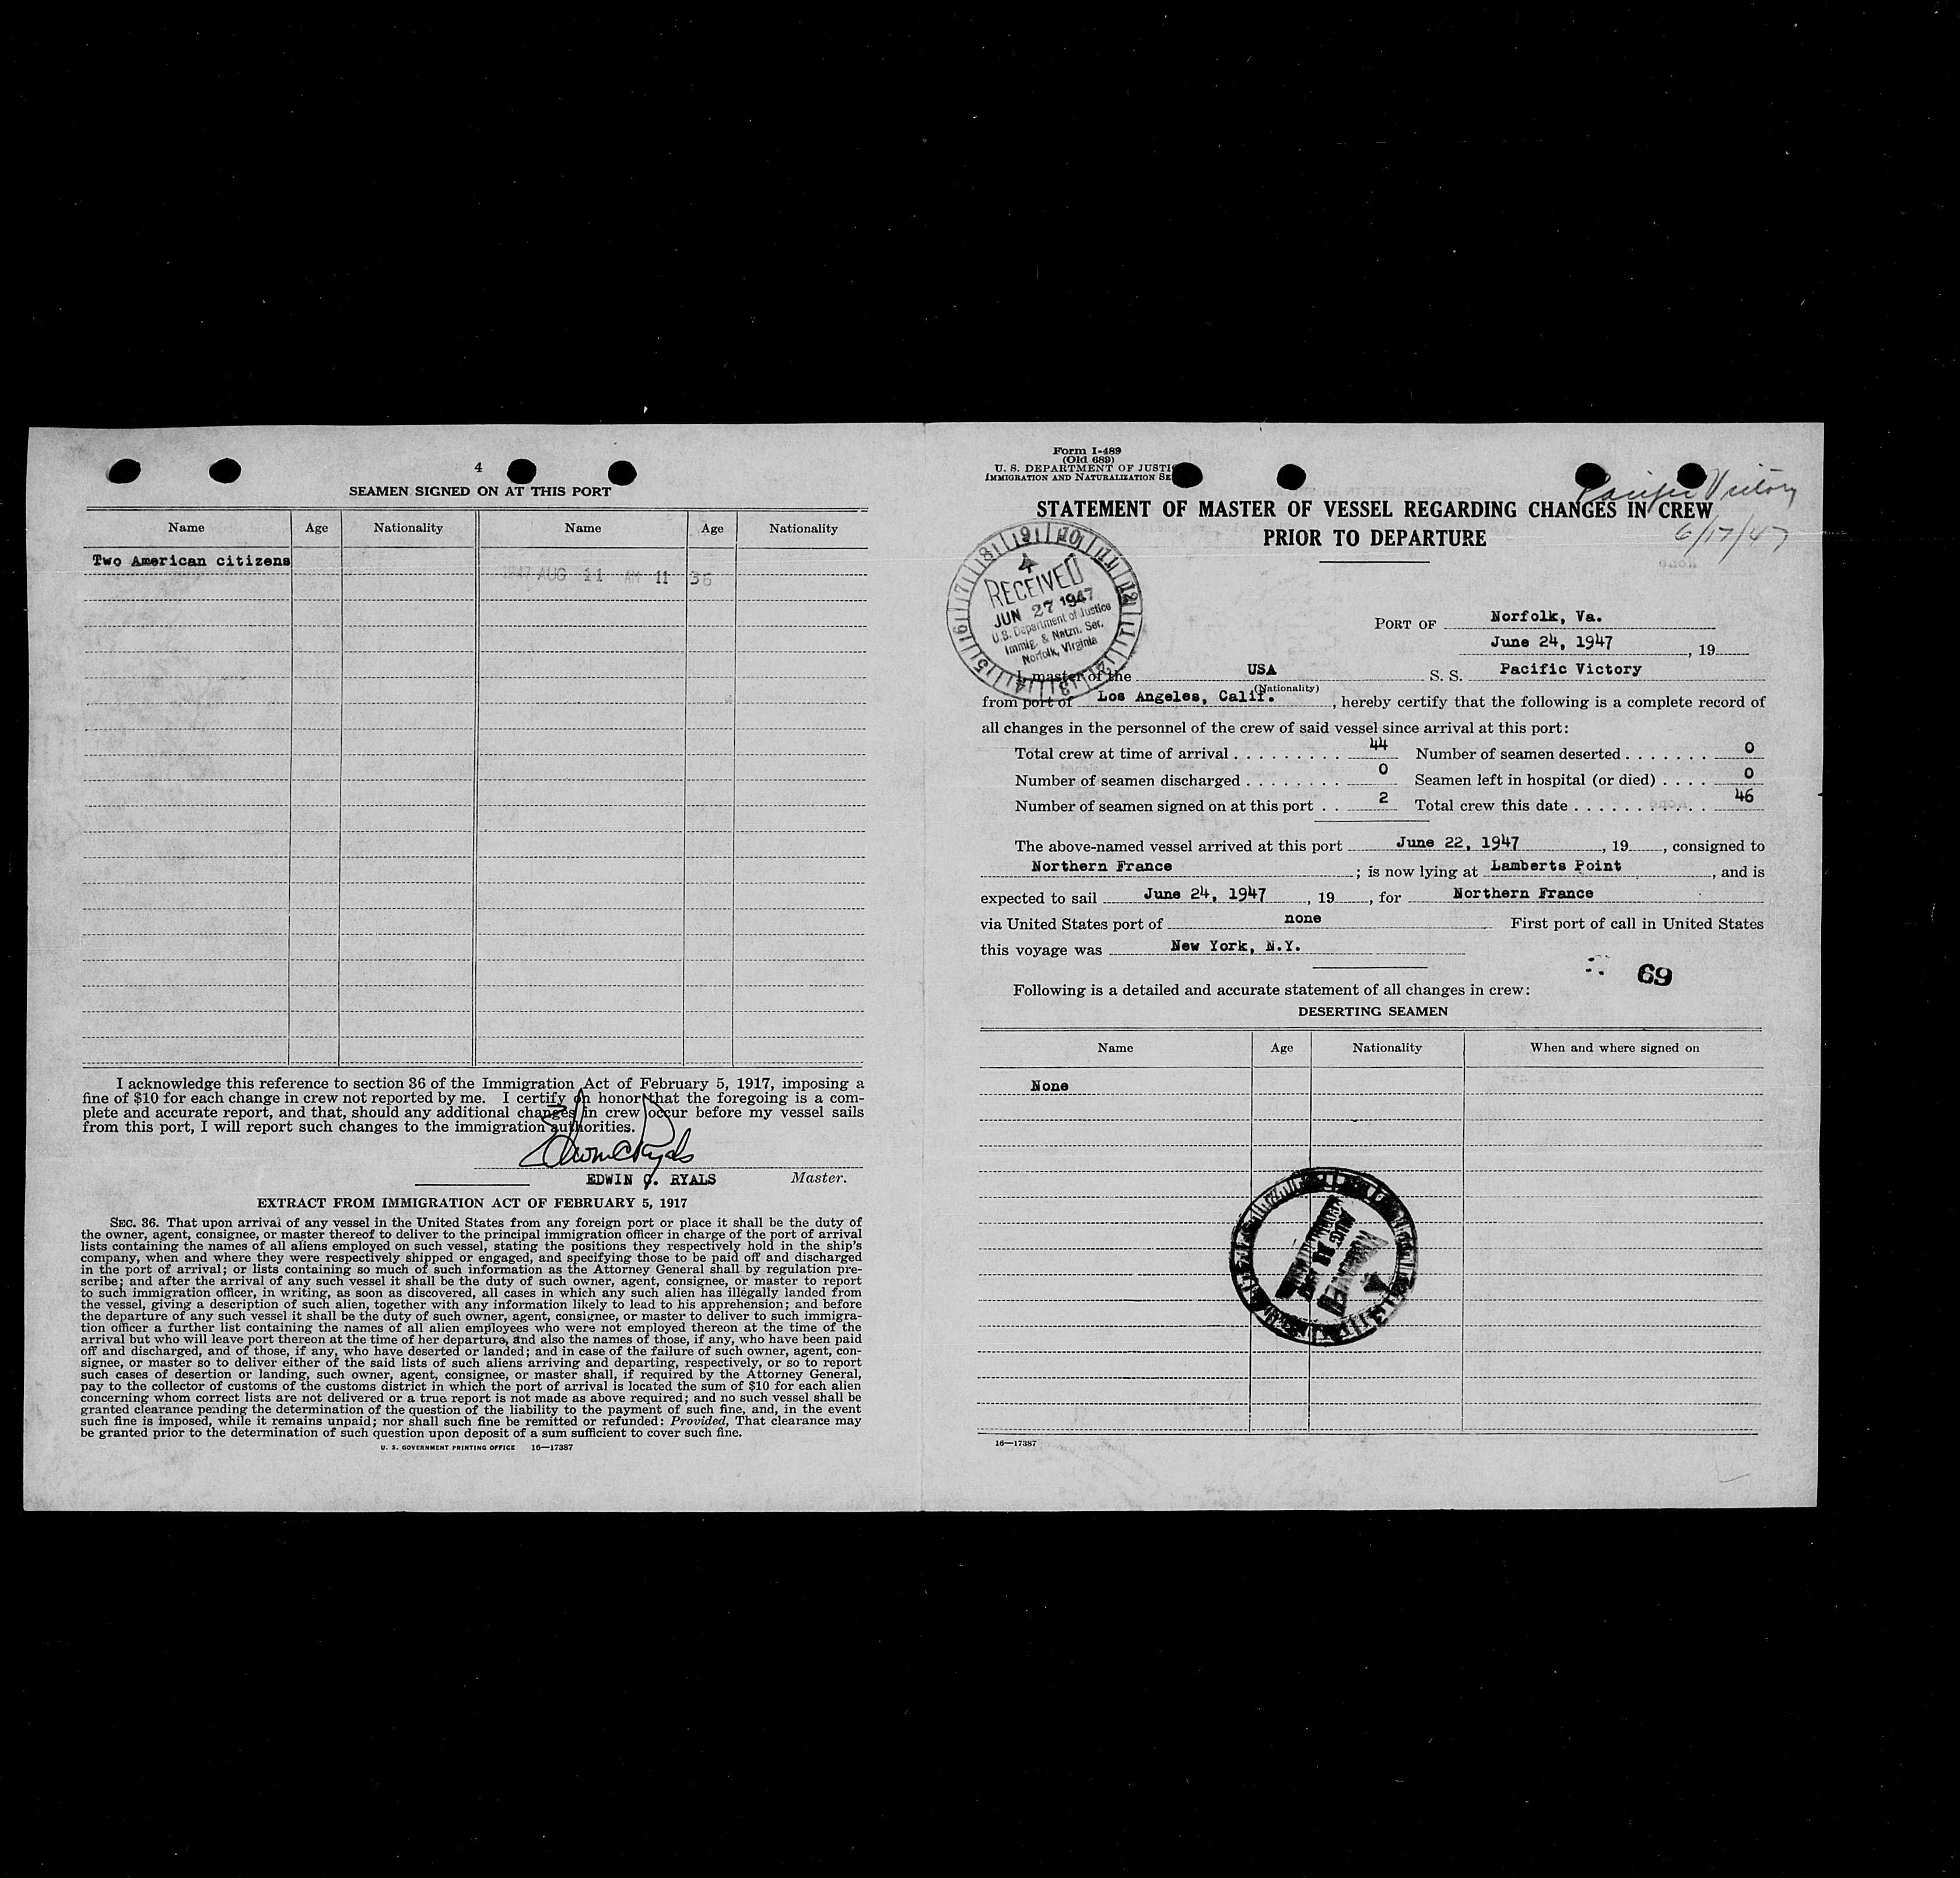 4
SEAMEN SIGNED ON AT THIS PORT
Name Age Nationality Name Age Nationality
Two American citizens
1947 AUG 11 AM 11 36
I acknowledge this reference to section 36 of the Immigration Act of February 5, 1917, imposing a
fine of $10 for each change in crew not reported by me. I certify on honor that the foregoing is a com-
plete and accurate report, and that, should any additional changes in crew occur before my vessel sails
from this port, I will report such changes to the immigration authorities.
Edwin C Ryals
EDWIN C. RYALS Master.
EXTRACT FROM IMMIGRATION ACT OF FEBRUARY 5, 1917
SEC. 36. That upon arrival of any vessel in the United States from any foreign port or place it shall be the duty of
the owner, agent, consignee, or master thereof to deliver to the principal immigration officer in charge of the port of arrival
lists containing the names of all aliens employed on such vessel, stating the positions they respectively hold in the ship's
company, when and where they were respectively shipped or engaged, and specifying those to be paid off and discharged
in the port of arrival; or lists containing so much of such information as the Attorney General shall by regulation pre-
scribe; and after the arrival of any such vessel it shall be the duty of such owner, agent, consignee, or master to report
to such immigration officer, in writing, as soon as discovered, all cases in which any such alien has illegally landed from
the vessel, giving a description of such alien, together with any information likely to lead to his apprehension; and before
the departure of any such vessel it shall be the duty of such owner, agent, consignee, or master to deliver to such immigra-
tion officer a further list containing the names of all alien employees who were not employed thereon at the time of the
arrival but who will leave port thereon at the time of her departure, and also the names of those, if any, who have been paid
off and discharged, and of those, if any, who have deserted or landed; and in case of the failure of such owner, agent, con-
signee, or master so to deliver either of the said lists of such aliens arriving and departing, respectively, or so to report
such cases of desertion or landing, such owner, agent, consignee, or master shall, if required by the Attorney General,
pay to the collector of customs of the customs district in which the port of arrival is located the sum of $10 for each alien
concerning whom correct lists are not delivered or a true report is not made as above required; and no such vessel shall be
granted clearance pending the determination of the question of the liability to the payment of such fine, and, in the event
such fine is imposed, while it remains unpaid; nor shall such fine be remitted or refunded: Provided, That clearance may
be granted prior to the determination of such question upon deposit of a sum sufficient to cover such fine.
U. S. GOVERNMENT PRINTING OFFICE 16—17387
Form I-489
(Old 689)
U. S. DEPARTMENT OF JUSTI
IMMIGRATION AND NATURALIZATION SE
Pacific Victory
6/17/47
STATEMENT OF MASTER OF VESSEL REGARDING CHANGES IN CREW
PRIOR TO DEPARTURE
RECEIVED
JUN 27 1947
U.S. Department of Justice
Immig. & Natzn. Ser.
Norfolk, Virginia
PORT OF Norfolk, Va.
June 24, 1947, 19
I, master of the USA S. S. Pacific Victory
(Nationality)
from port of Los Angeles, Calif., hereby certify that the following is a complete record of
all changes in the personnel of the crew of said vessel since arrival at this port:
Total crew at time of arrival 44 Number of seamen deserted 0
Number of seamen discharged 0 Seamen left in hospital (or died) 0
Number of seamen signed on at this port 2 Total crew this date 46
The above-named vessel arrived at this port June 22, 1947, 19, consigned to
Northern France; is now lying at Lamberts Point, and is
expected to sail June 24, 1947, 19, for Northern France
via United States port of none First port of call in United States
this voyage was New York, N.Y.
69
Following is a detailed and accurate statement of all changes in crew:
DESERTING SEAMEN
Name Age Nationality When and where signed on
None
16—17387